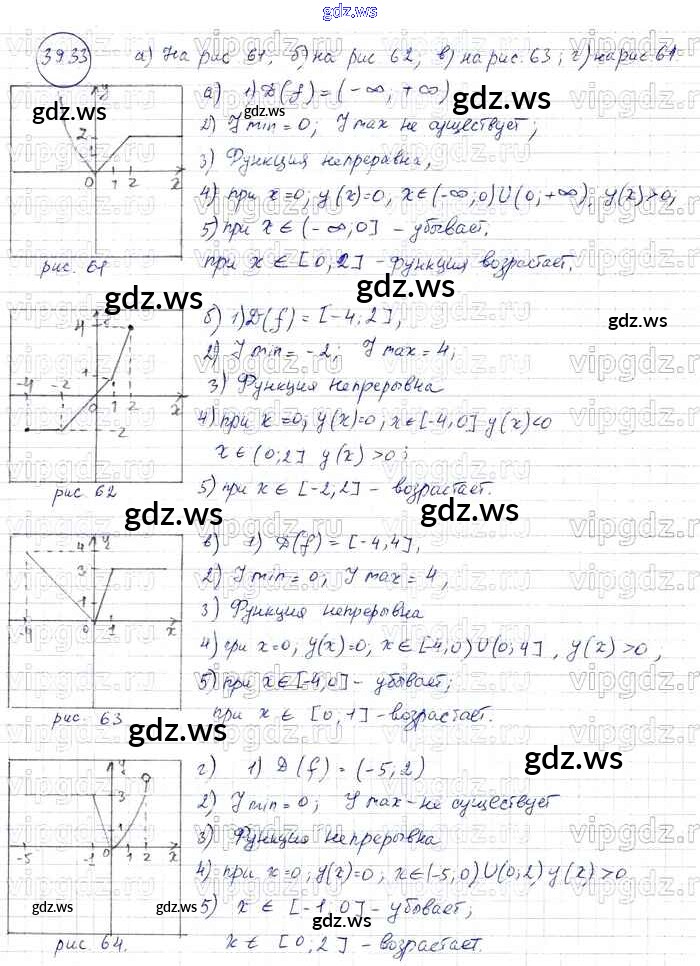 gdz.ws
39.33 а) На рис 61; б) на рис 62; в) на рис. 63; г) на рис. 61
а) 1) D(f) = (-∞, +∞)
2) y min = 0; y max не существует;
3) Функция непреравна,
4) при x=0; y(x)=0, x∈(-∞,0)U(0,+∞), y(x)>0;
5) при x∈(-∞;0] - убывает,
при x∈[0,2] - функция возрастает.
y
2
0 1 2 x
рис. 61
gdz.ws
gdz.ws
gdz.ws
gdz.ws
б) 1) D(f) = [-4,2],
2) y min = -2; y max = 4;
3) Функция непрерывна
4) при x=0; y(x)=0, x∈[-4,0] y(x)<0
x∈(0;2] y(x)>0;
5) при x∈[-2,2] - возрастает.
4
1
-4 -2 0 1 2 x
-2
рис 62
gdz.ws
gdz.ws
gdz.ws
в) 1) D(f) = [-4,4],
2) y min = 0; y max = 4,
3) Функция непрерывна
4) при x=0, y(x)=0, x∈[-4,0)U(0,4], y(x)>0,
5) при x∈[-4,0] - убывает;
при x∈[0,1] - возрастает.
4 y
3
1
-4 0 1 x
рис. 63
gdz.ws
gdz.ws
г) 1) D(f) = (-5;2)
2) y min = 0; y max - не существует
3) Функция непрерывна
4) при x=0, y(x)=0, x∈(-5,0)U(0,2) y(x)>0
5) x∈[-1,0] - убывает,
x∈[0;2] - возрастает.
y
3
1
-5 -1 0 1 2 x
рис. 64.
gdz.ws
gdz.ws
gdz.ws
gdz.ws
vipgdz.ru